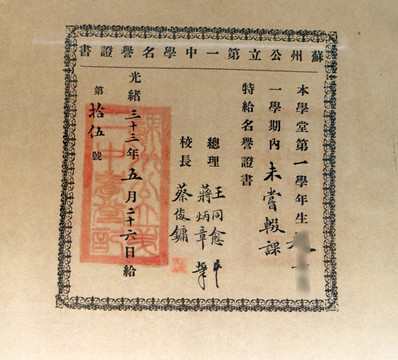 蘇州公立第一中學名譽證書
本學堂第一學年生
一學期內未嘗輟課
特給名譽證書
總理 王同愈 蔣炳章
校長 蔡俊鏞
光緒三十三年五月二十六日給
第拾伍號